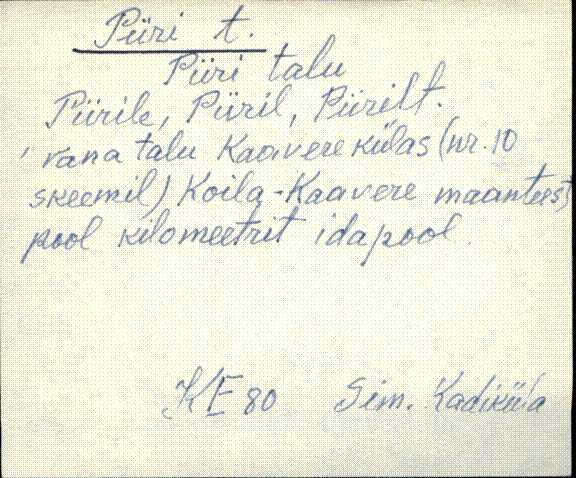 Püri t.
Püri talu
Pürile, Püril, Pürilt.
vana talu Kaavere külas (nr. 10
skeemil) Koila-Kaavere maanteest
pool kilomeetrit idapool.
KE 80 Sim. Kadiküla